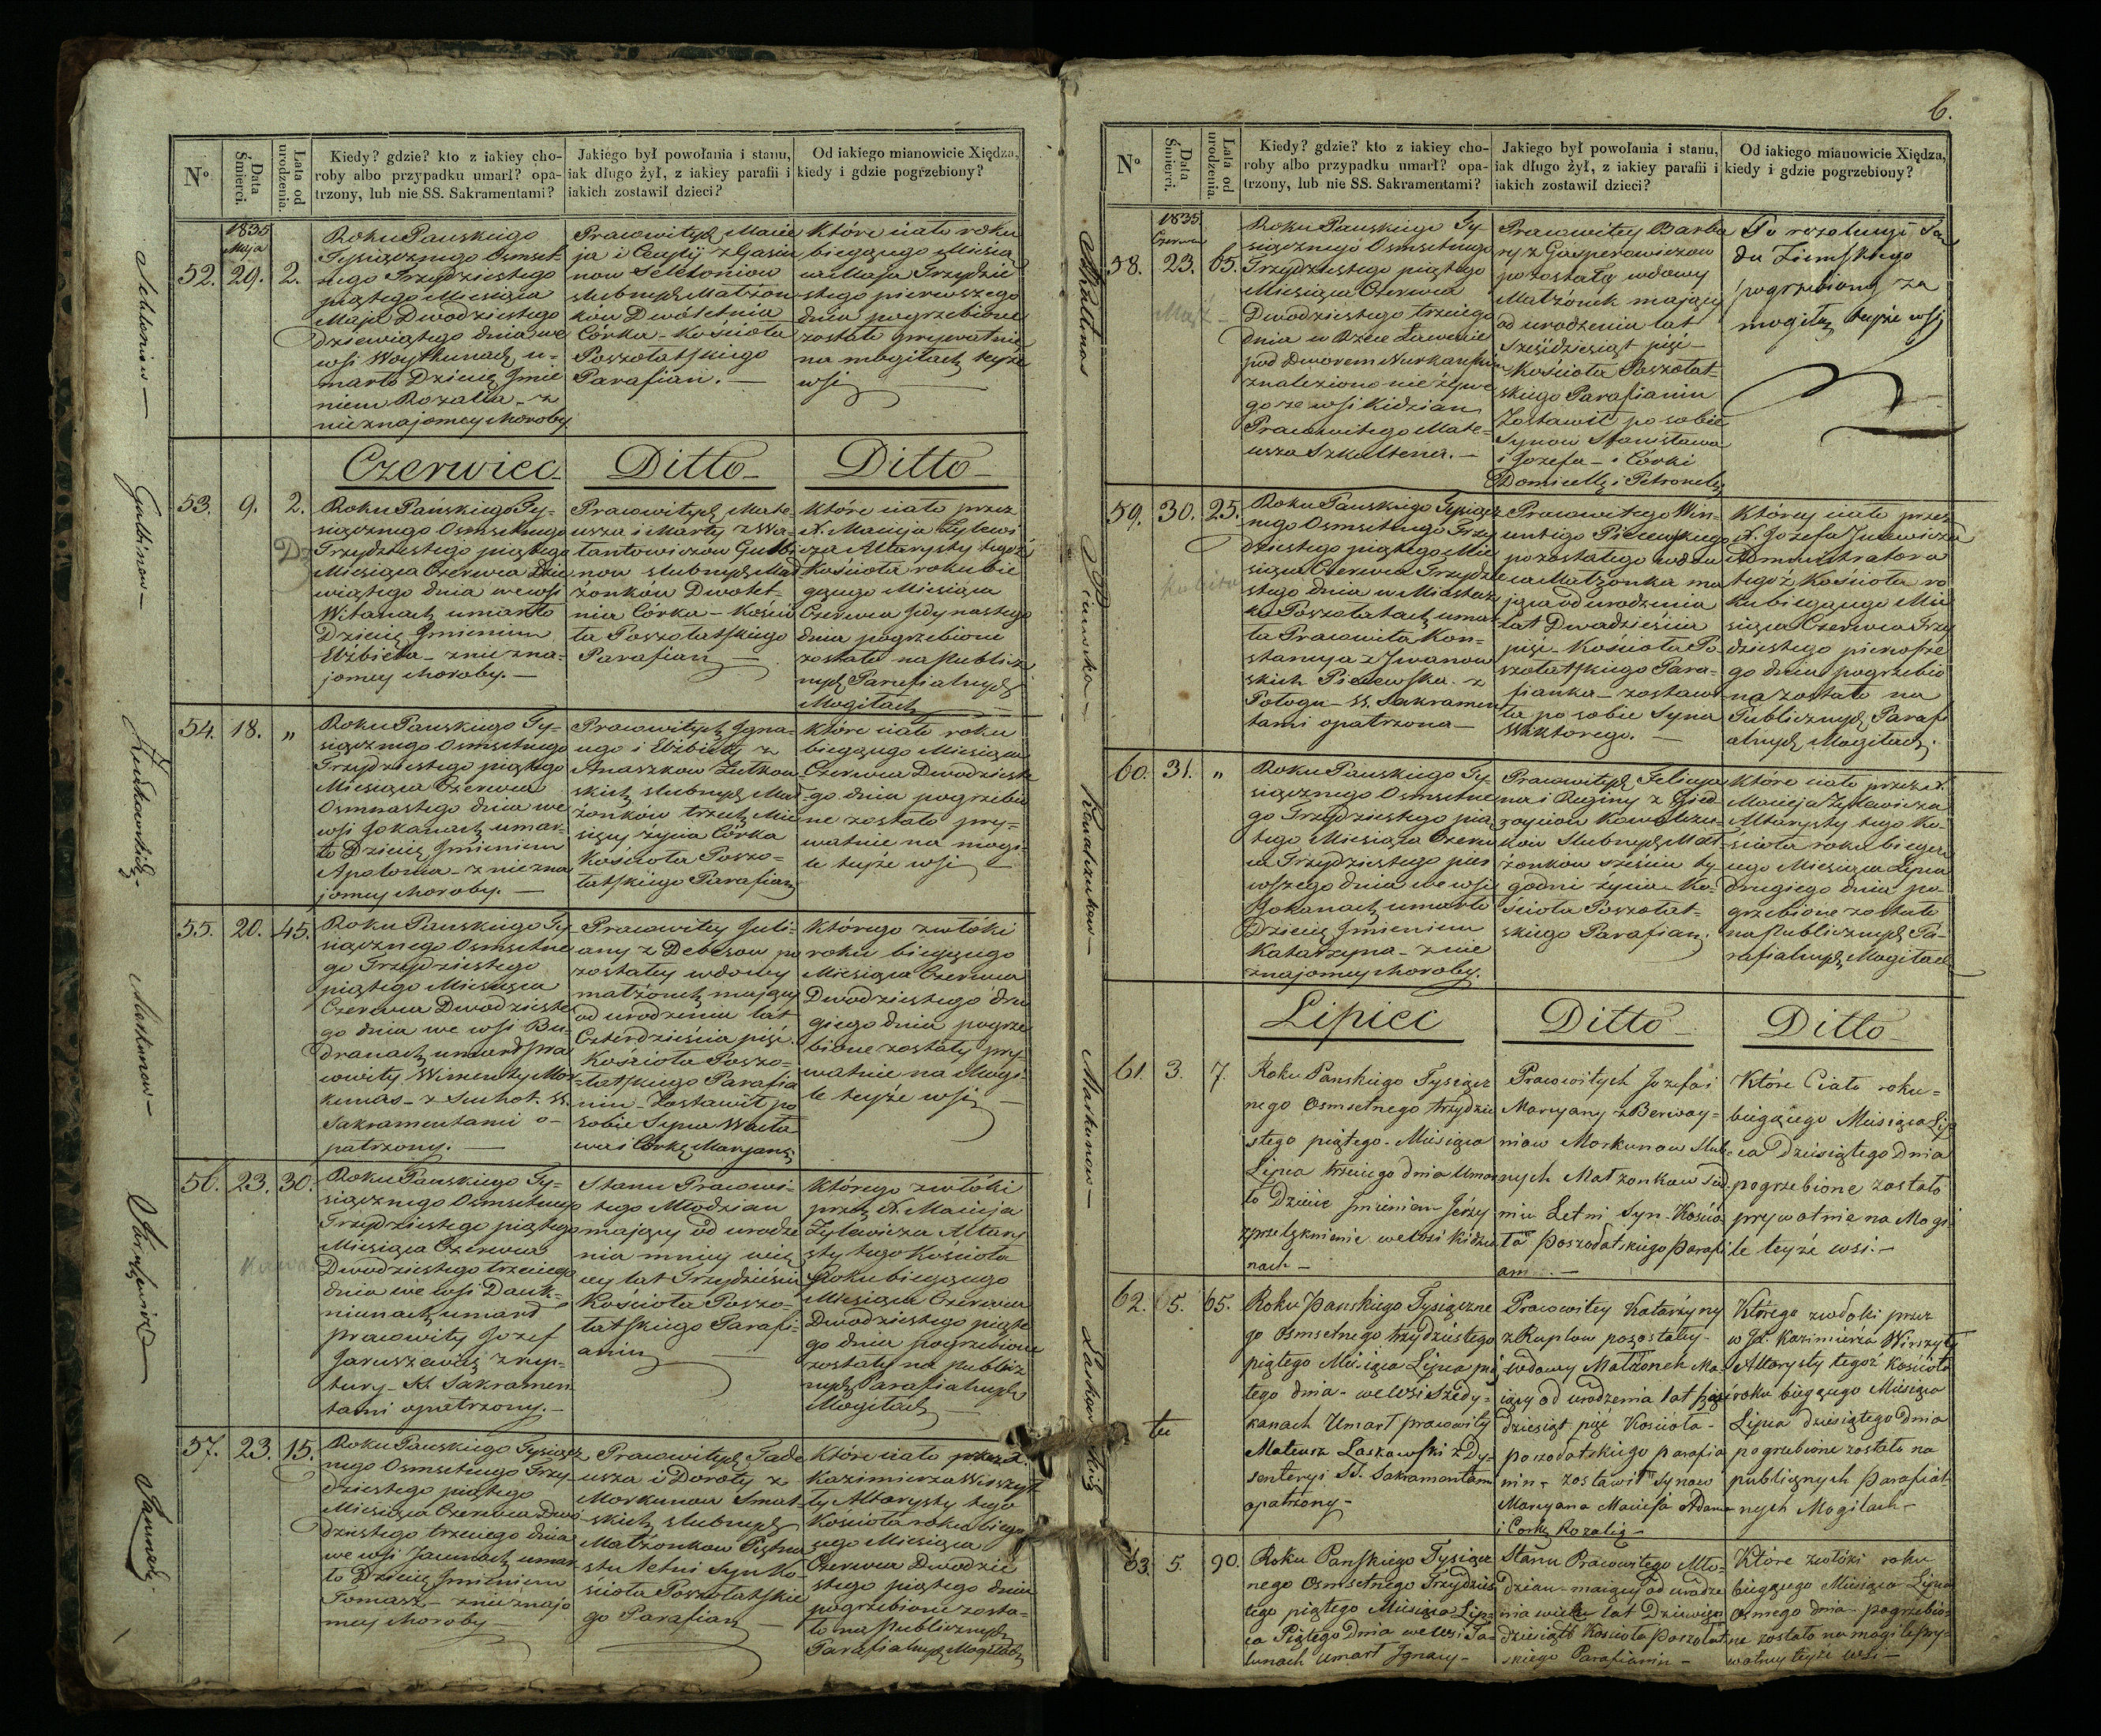 No
Data Śmierci.
Lata od urodzenia.
Kiedy? gdzie? kto z iakiey cho-
roby albo przypadku umarł? opa-
trzony, lub nie SS. Sakramentami?
Jakiego był powołania i stanu,
iak długo żył, z iakiey parafii i
iakich zostawił dzieci?
Od iakiego mianowicie Xiędza,
kiedy i gdzie pogrzebiony?
1835
Maja
52. 29. 2.
Roku Pańskiego
Tysiącznego Osmset-
nego Trzydziestego
piątego Miesiąca
Maja Dwodziestego
dziewiątego dnia we
wsi Woytkunach u-
marło Dziecię Jmie
niem Rozalia - z
nieznajomey choroby
Pracowitych Macie
ja i Cecylij z Gasiu
now
slubnych Małżon
kow Dwóletnia
Córka - Kościoła
Poszołatskiego
Parafian. -
Które ciało roku
biegącego Miesią
ca Maja Trzydzie
stego pierwszego
dnia pogrzebione
zostało prywatnie
na mogiłach teyże
wsi
Czerwiec - Ditto - Ditto -
53. 9. 2.
Roku Pańskiego Ty-
siącznego Osmsetnego
Trzydziestego piątego
Miesiąca Czerwca Dzie
wiątego dnia we wsi
Witanach umarło
Dziecię Jmieniem
Elżbieta - z niezna-
jomey choroby. -
Pracowitych Mate-
usza i Marty z Wa-
lantowiczow Gulbi
now slubnych Mał
żonkow Dwolet-
nia Córka - Kościo
ła Poszołatskiego
Parafian -
Które ciało przez
X. Macieja Zylewi
cza Altarysty tegoż
Kościoła roku bie
gącego Miesiąca
Czerwca Jedynastego
dnia pogrzebione
zostało na Publicz
nych Parafialnych
Mogiłach
54. 18. „
Roku Pańskiego Ty-
siącznego Osmsetnego
Trzydziestego piątego
Miesiąca Czerwca
Osmnastego dnia we
wsi Jokanach umar-
ło Dziecię Jmieniem
Apolonia - z niezna
jomey choroby. -
Pracowitych Jgna-
cego i Elżbiety z
Anaszkow Żutkow
skich slubnych Mał
żonków trzech Mie
sięcy życia Córka
Kościoła Poszo-
łatskiego Parafian
Które ciało roku
biegącego Miesiąca
Czerwca Dwodzieste
go dnia pogrzebio
ne zostało pry-
watnie na mogi-
le teyże wsi -
55. 20. 45.
Roku Pańskiego Ty
siącznego Osmsetne
go Trzydziestego
piątego Miesiąca
Czerwca Dwodzieste
go dnia we wsi Bu-
dranach umarł Pra
cowity Wincenty Mor
kunas - z Suchot. SS.
Sakramentami o-
patrzony. -
Pracowitey Juli-
any z Debesow po
zostałey wdowy
małżonek mający
od urodzenia lat
Czterdzieścia pięć.
Kościoła Poszo-
łatskiego Parafia
nin - Zostawił po
sobie Syna Wacła
wa i Córkę Maryannę
Którego zwłóki
roku biegącego
Miesiąca Czerwca
Dwodziestego dru
giego dnia pogrze
bione zostały pry-
watnie na Mogi-
le teyże wsi -
56. 23. 30.
Roku Pańskiego Ty-
siącznego Osmsetnego
Trzydziestego piątego
Miesiąca Czerwca
Dwodziestego trzeciego
dnia we wsi Dauk-
niunach umarł
pracowity Jozef
Jaruszewicz z rup-
tury - SS. Sakramen
tami opatrzony. -
Stanu Pracowi-
tego Młodzian
mający od urodze
nia mniey wię
cey lat Trzydzieścia
Kościoła Poszo-
łatskiego Parafi-
anin
Którego zwłóki
przez X. Macieja
Zylewicza Altary
sty tego Kościoła
Roku biegącego
Miesiąca Czerwca
Dwodziestego piąte
go dnia pogrzebione
zostały na publicz
nych Parafialnych
Mogiłach
57. 23. 15.
Roku Pańskiego Tysiącz
nego Osmsetnego Trzy-
dziestego piątego
Miesiąca Czerwca Dwo
dziestego trzeciego dnia
we wsi Jaunach umar
ło Dziecię Jmieniem
Tomasz - z nieznajo
mey choroby
Pracowitych Tade
usza i Doroty z
Morkunow
slubnych
Małżonkow Piętna
sto letni Syn Ko-
ścioła Poszołatskie
go Parafian
Które ciało przez X.
Kazimierza Wirszył
ły Altarysty tego
Kościoła roku biegą
cego Miesiąca
Czerwca Dwodzie
stego piątego dnia
pogrzebione zosta-
ło na Publicznych
Parafialnych Mogiłach
6.
No
Data Śmierci.
Lata od urodzenia.
Kiedy? gdzie? kto z iakiey cho-
roby albo przypadku umarł? opa-
trzony, lub nie SS. Sakramentami?
Jakiego był powołania i stanu,
iak długo żył, z iakiey parafii i
iakich zostawił dzieci?
Od iakiego mianowicie Xiędza,
kiedy i gdzie pogrzebiony?
1835
Czerwca
58. 23. 65.
Roku Pańskiego Ty-
siącznego Osmsetnego
Trzydziestego piątego
Miesiąca Czerwca
Dwodziestego trzeciego
dnia w Rzece Ławenie
pod Dworem
znaleziono nieżywe
go ze wsi Kidzian
Pracowitego Mate-
usza Szkultena. -
Pracowitey Barba
ry z Gasperowiczow
pozostałey wdowy
Małżonek mający
od urodzenia lat
Sześćdziesiąt pięć -
Kościoła Poszołat-
skiego Parafianin
Zostawił po sobie
Synow Stanisława
i Jozefa - i Córki
Domicellę i Petronellę
Po rezolucyi Są
du Ziemskiego
pogrzebiony za
mogiłą teyże wsi
59. 30. 25.
Roku Pańskiego Tysiącz
nego Osmsetnego Trzy
dziestego piątego Mie
siąca Czerwca Trzydzie
stego dnia w Miastecz
ku Poszołatach umar
ła Pracowita Kon-
stancya z Jwanow
skich Piesewska - z
Połogu - SS. Sakramen
tami opatrzona -
Pracowitego Win-
centego Piesewskiego
pozostałego wdow
ca Małżonka ma
jąca od urodzenia
lat Dwadzieścia
pięć - Kościoła Po
szołatskiego Para-
fianka - zostawi
ła po sobie Syna
Wiktorego. -
Którey ciało przez
X. Jozefa Jucewicza
Administratora
tegoż Kościoła ro
ku biegącego Mie
siąca Czerwca Trzy
dziestego pierwsze
go dnia pogrzebio
ną zostało na
Publicznych Parafi
alnych Mogiłach.
60. 31. „
Roku Pańskiego Ty-
siącznego Osmsetne
go Trzydziestego pią
tego Miesiąca Czerw
ca Trzydziestego pier
wszego dnia we wsi
Jokanach umarło
Dziecię Jmieniem
Katarzyna - z nie
znajomey choroby.
Pracowitych Felicya
na i Reginy z
Kowalczu-
kow Slubnych Mał-
żonkow sześciu ty-
godni życia - Ko-
ścioła Poszołat-
skiego Parafian.
Które ciało przez X.
Macieja Zylewicza
Altarysty tego Ko-
ścioła roku biegą
cego Miesiąca Lipca
drugiego dnia po-
grzebione zostało
na Publicznych Pa-
rafialnych Mogiłach
Lipiec Ditto - Ditto -
61. 3. 7.
Roku Panskiego Tysiącz
nego Osmsetnego trzydzie
stego piątego - Miesiąca
Lipca trzeciego dnia Umar
ło Dziecie Jmieniem Jerzy
z przelęknienie we Wsi Kidzia
nach -
Pracowitych Jozefa i
Maryany z Berway-
niow Morkunow Slub-
nych Małżonkow Sied-
mio Letni Syn - Kościo
ła Poszołatskiego Parafi
an -
Które Ciało roku -
biegącego Miesiąca Lip
ca Dziesiątego Dnia
pogrzebione zostało
prywatnie na Mogi
le teyże wsi. -
62. 5. 65.
Roku Panskiego Tysiączne
go Osmsetnego trzydziestego
piątego Miesiąca Lipca pią
tego dnia - we Wsi Szedy-
kanach Umarł pracowity
Mateusz Laskowski z Dy-
senteryi SS. Sakramentami
opatrzony -
Pracowitey Katarzyny
z Ruplow pozostałey -
wdowy Małżonek Ma-
iący od urodzenia lat sześć
dziesiąt pięć Kościoła -
poszołatskiego parafia
nin - zostawił Synow
Maryana Macieja Adama
i Corkę Rozalię -
Którego zwłoki przez
w JX. Kazimierza Wirszyłły
Altarysty tegoż Kościoła
roku biegącego Miesiąca
Lipca dziesiątego dnia
pogrzebione zostało na
publicznych Parafial-
nych Mogiłach -
63. 5. 90.
Roku Panskiego Tysiącz
nego Osmsetnego Trzydzies
tego piątego Miesiąca Lip-
ca Piątego Dnia we Wsi Ta-
lunach Umarł Jgnacy -
Stanu Pracowitego Mło-
dzian - maiący od urodze
nia wieku lat Dziewięć
dziesiąt Kościoła Poszołat
skiego Parafianin -
Które zwłóki roku
biegącego Miesiąca Lipca
Osmego dnia - pogrzebio-
ne zostało na mogile pry-
watney teyże Wsi -